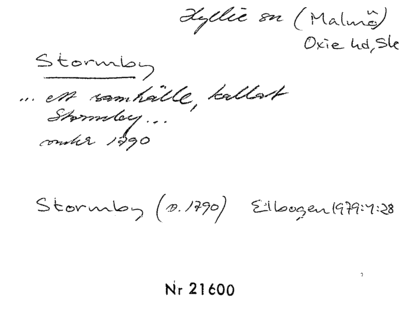 Hyllie sn (Malmö)
Oxie hd, Sk
Stormby
... ett samhälle, kallat
Stormby...
under 1790
Stormby (o. 1790) Elbogen 1979:4:28
Nr 21600